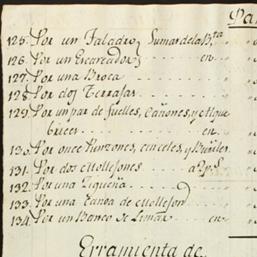 Pa
125. Por un Taladro Sumar de la Bta
126. Por un Encareador en
127. Por una Broca
128. Por dos Terrajas
129. Por un par de fuelles, Cañones, y Alque
brices en
130. Por once Punzones, cinceles, y Buriles
131. Por dos Mollejones a 2 ps
132. Por una Zigueña
133. Por una Canoa de Mollejon
134. Por un Banco de Limar en
Erramienta de